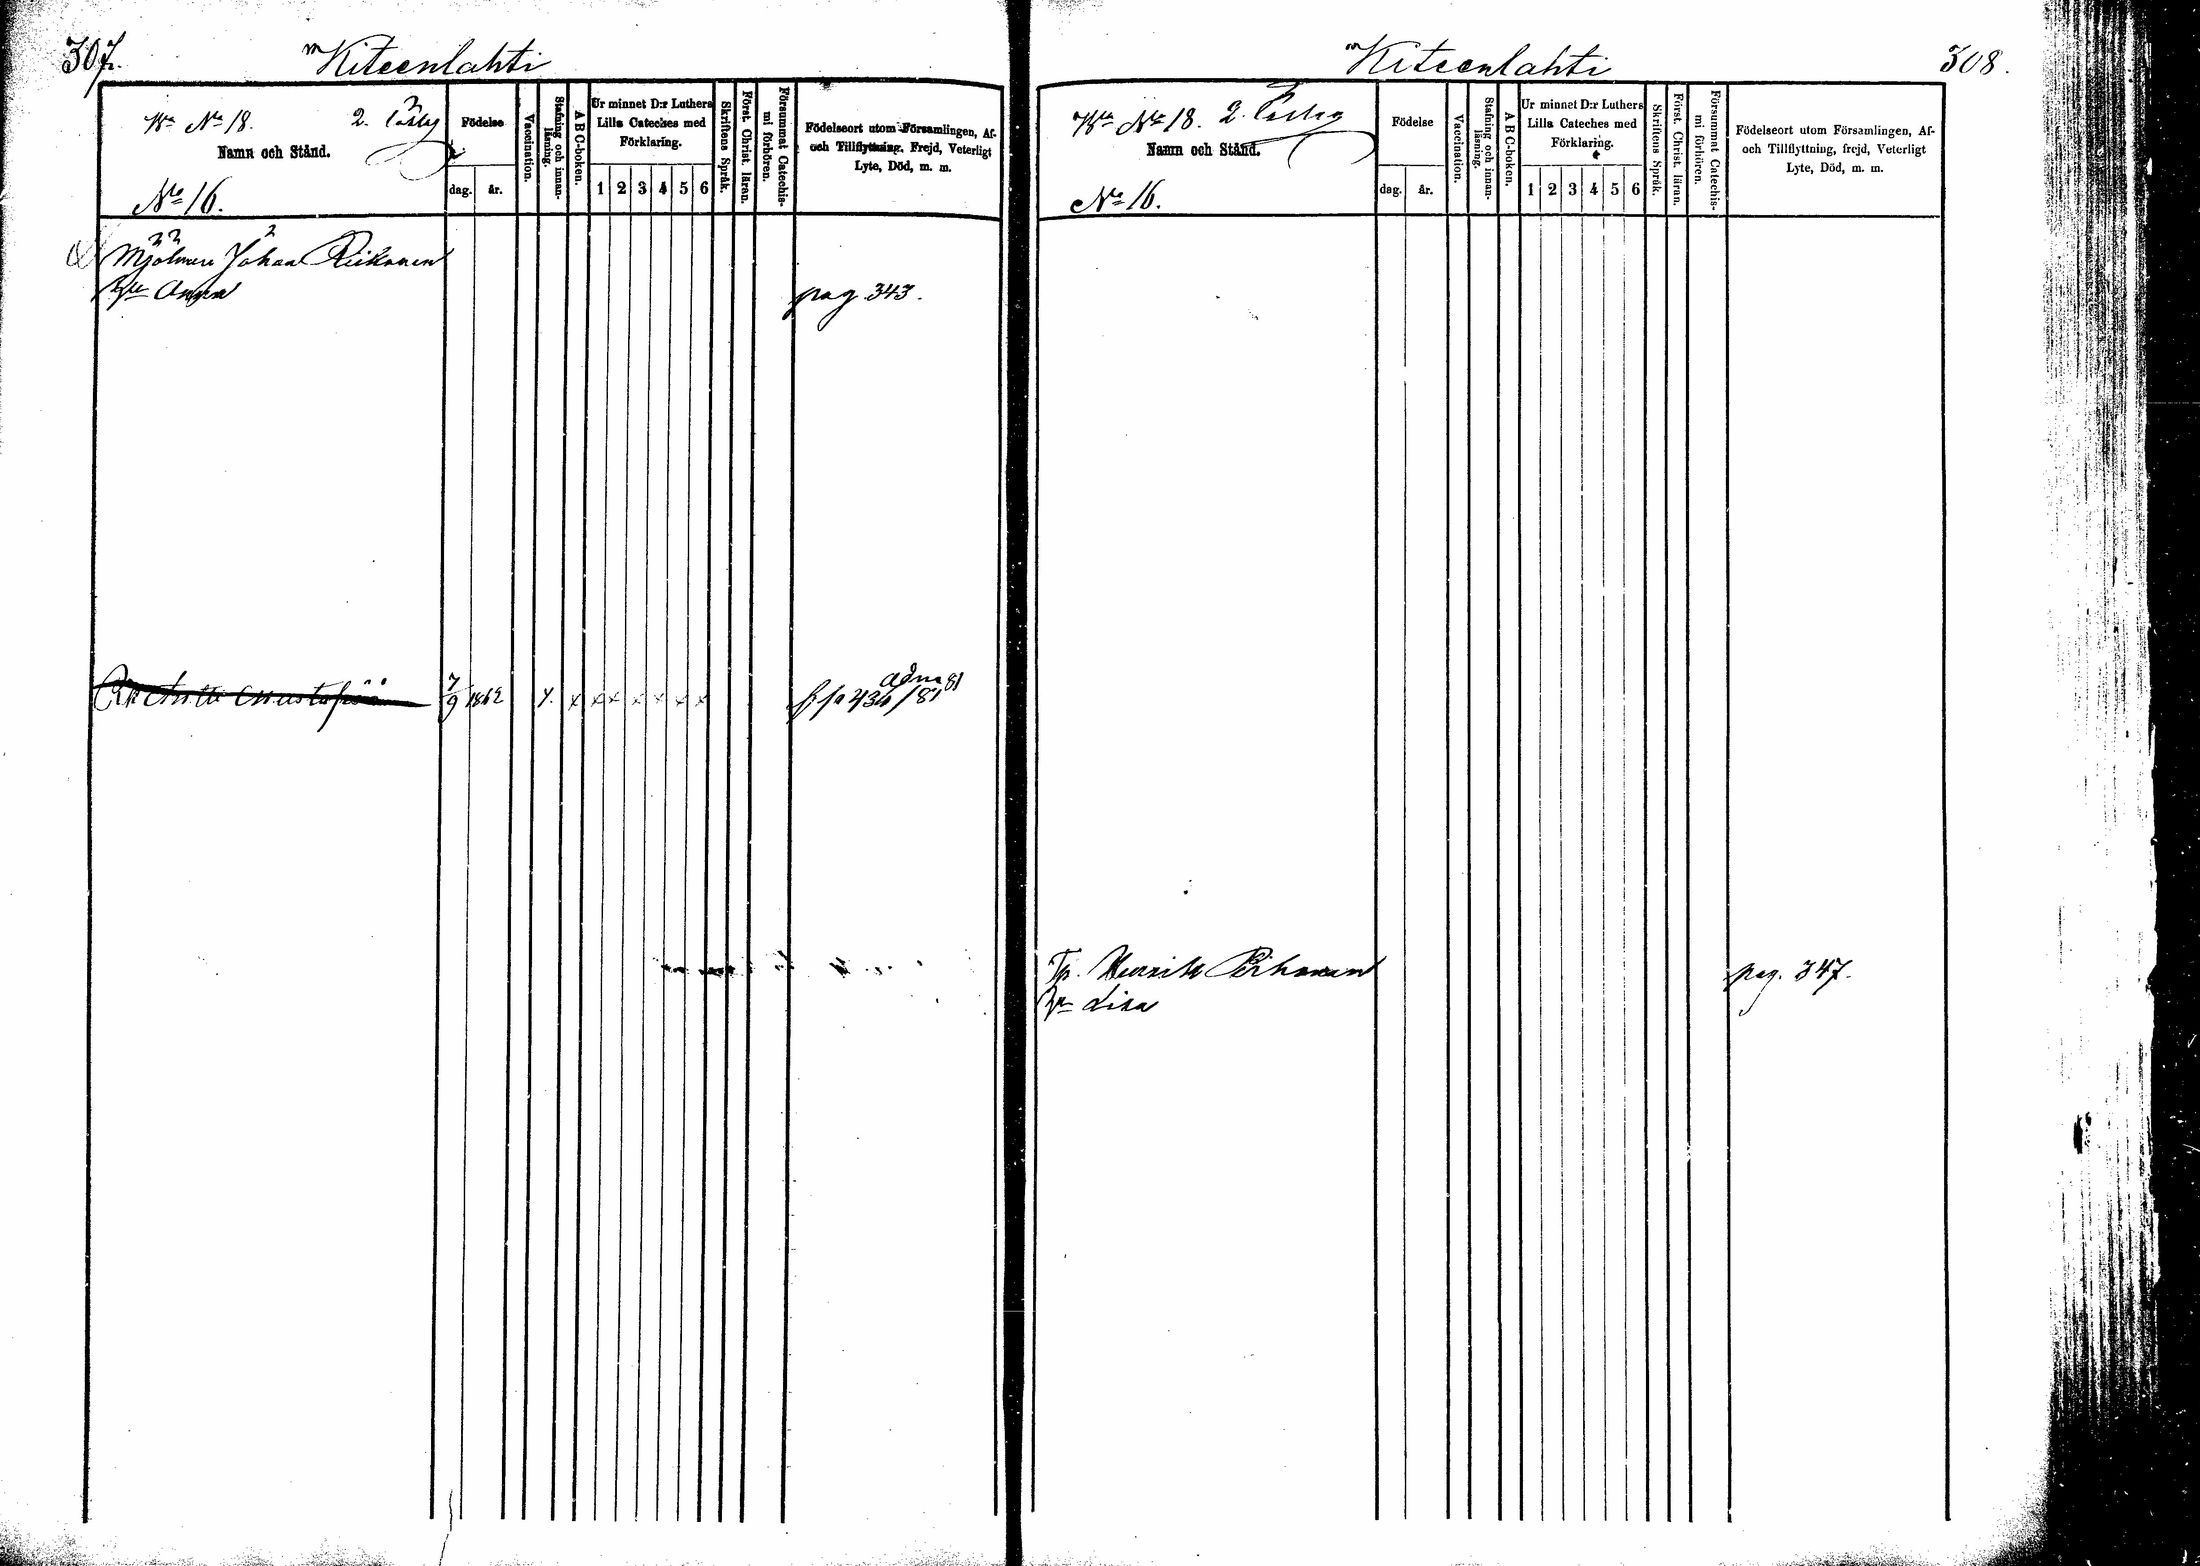 307.
Kiteenlahti
No 18. 2.
Namn och Stånd.
No 16.
Födelse
dag. år.
Vaccination.
Stafning och innan-
läsning.
A B C-boken.
Ur minnet D:r Luthers
Lilla Cateches med
Förklaring.
1 2 3 4 5 6
Skriftens Språk.
Först. Christ. läran.
Försummat Catechis-
mi förhören.
Födelseort utom Församlingen, Af-
och Tillflyttning, Frejd, Veterligt
Lyte, Död, m. m.
Johan
Anna pag 343.
7/9 1862 x x x x x x x /81
Kiteenlahti
308.
No 18. 2.
Namn och Stånd.
No 16.
Födelse
dag. år.
Vaccination.
Stafning och innan-
läsning.
A B C-boken.
Ur minnet D:r Luthers
Lilla Cateches med
Förklaring.
1 2 3 4 5 6
Skriftens Språk.
Först. Christ. läran.
Försummat Catechis-
mi förhören.
Födelseort utom Församlingen, Af-
och Tillflyttning, frejd, Veterligt
Lyte, Död, m. m.
Henrik Pirhonen pag. 347.
Lisa